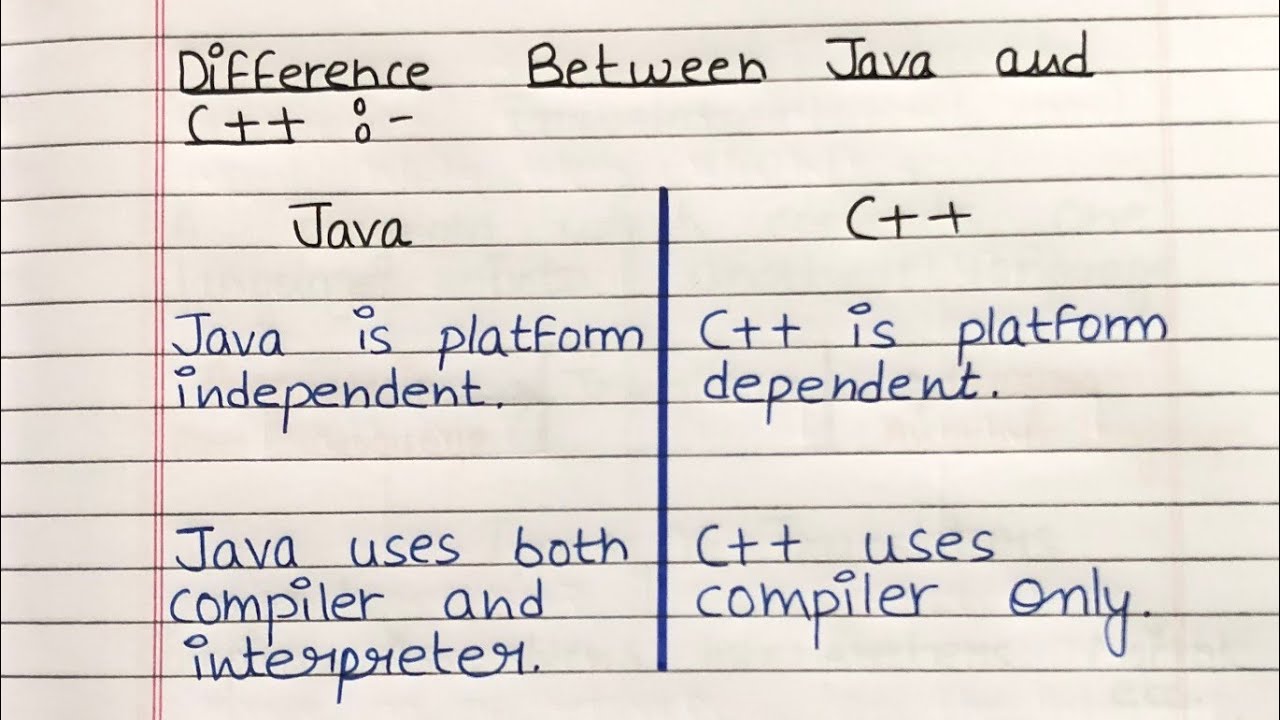 Difference Between Java and
C++ :-
Java
C++
Java is platform
independent.
C++ is platform
dependent.
Java uses both
compiler and
interpreter.
C++ uses
compiler only.